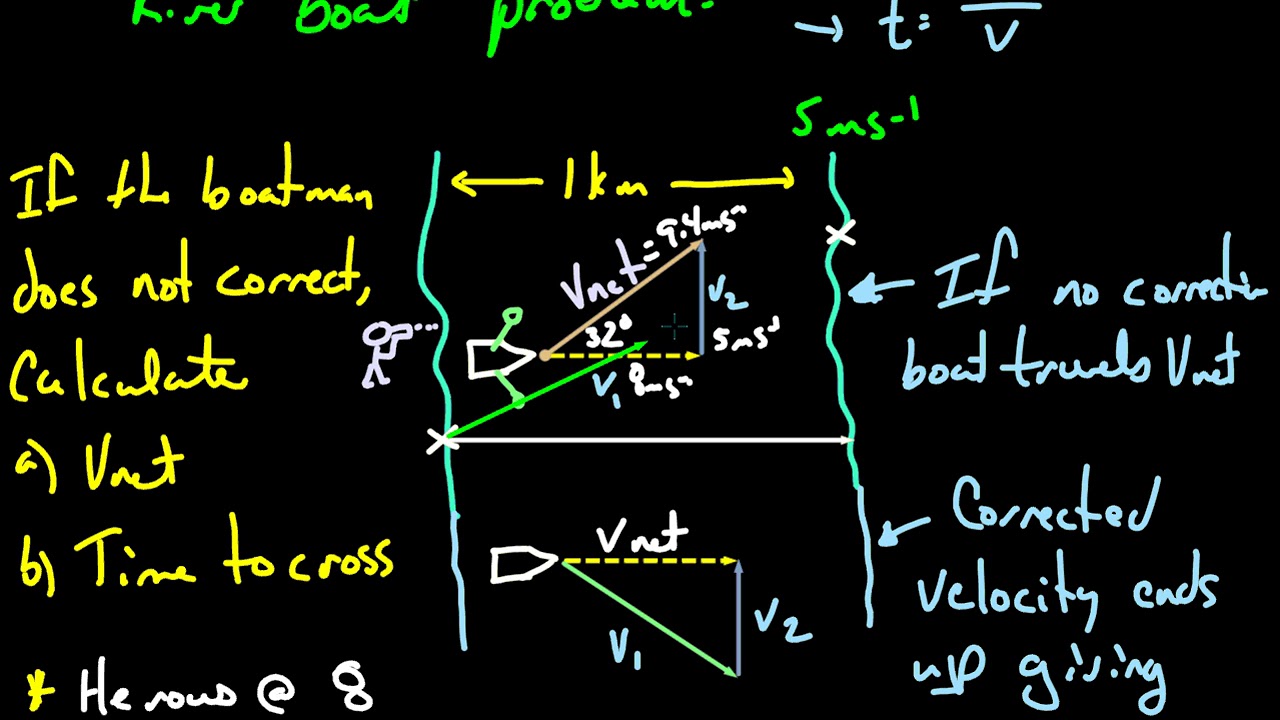 River boat problem:
→ t = / v
5 ms-1
If the boatman
does not correct,
Calculate
a) Vnet
b) Time to cross
* He rows @ 8
← 1 km →
Vnet = 9.4ms-1
V2
32°
5ms-1
V1 8ms-1
Vnet
V2
V1
← If no correction
boat travels Vnet
Corrected
velocity ends
up giving